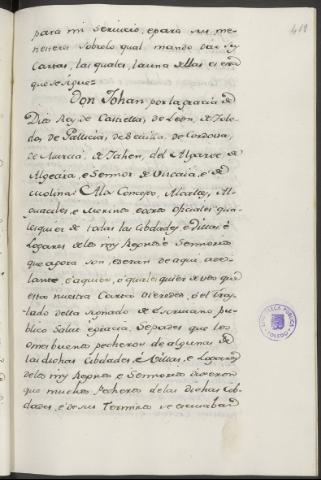 411
para mi Servicio, e para su me-
nenera sobre lo qual mando dar sus
Cartas, las quales, la una de llas es esta
que se sigue =
Don Johan por la gracia de
Dios Rey de Castiella, de Leon, de Tole-
do, de Gallicia, de Sevilla, de Cordova,
de Murcia, de Jahen, del Algarve, de
Algecira, e Sennor de Viscaia, e de
Molina: A los Concejos, Alcaldes, Al-
guaciles, e Merinos e otros oficiales qua-
lesquier de todas las Cibdades, e Villas, e
Logares de los mis Regnos e Sennorios
que agora son, e seran de aqui ade-
lante e a quien, o qualesquier de vos que
esta nuestra Carta vieredes, o el Tras-
lado della signado de Escrivano pu-
blico Salut e gracia, Sepades que los
omes buenos pecheros de algunas de
las dichas Cibdades, e Villas, e Logares
de los mis Regnos e Sennorios dixeron
que muchos Pecheros de las dichas Cib-
dades, e de sus Terminos se escusaban
BIBLIOTECA PUBLICA
TOLEDO